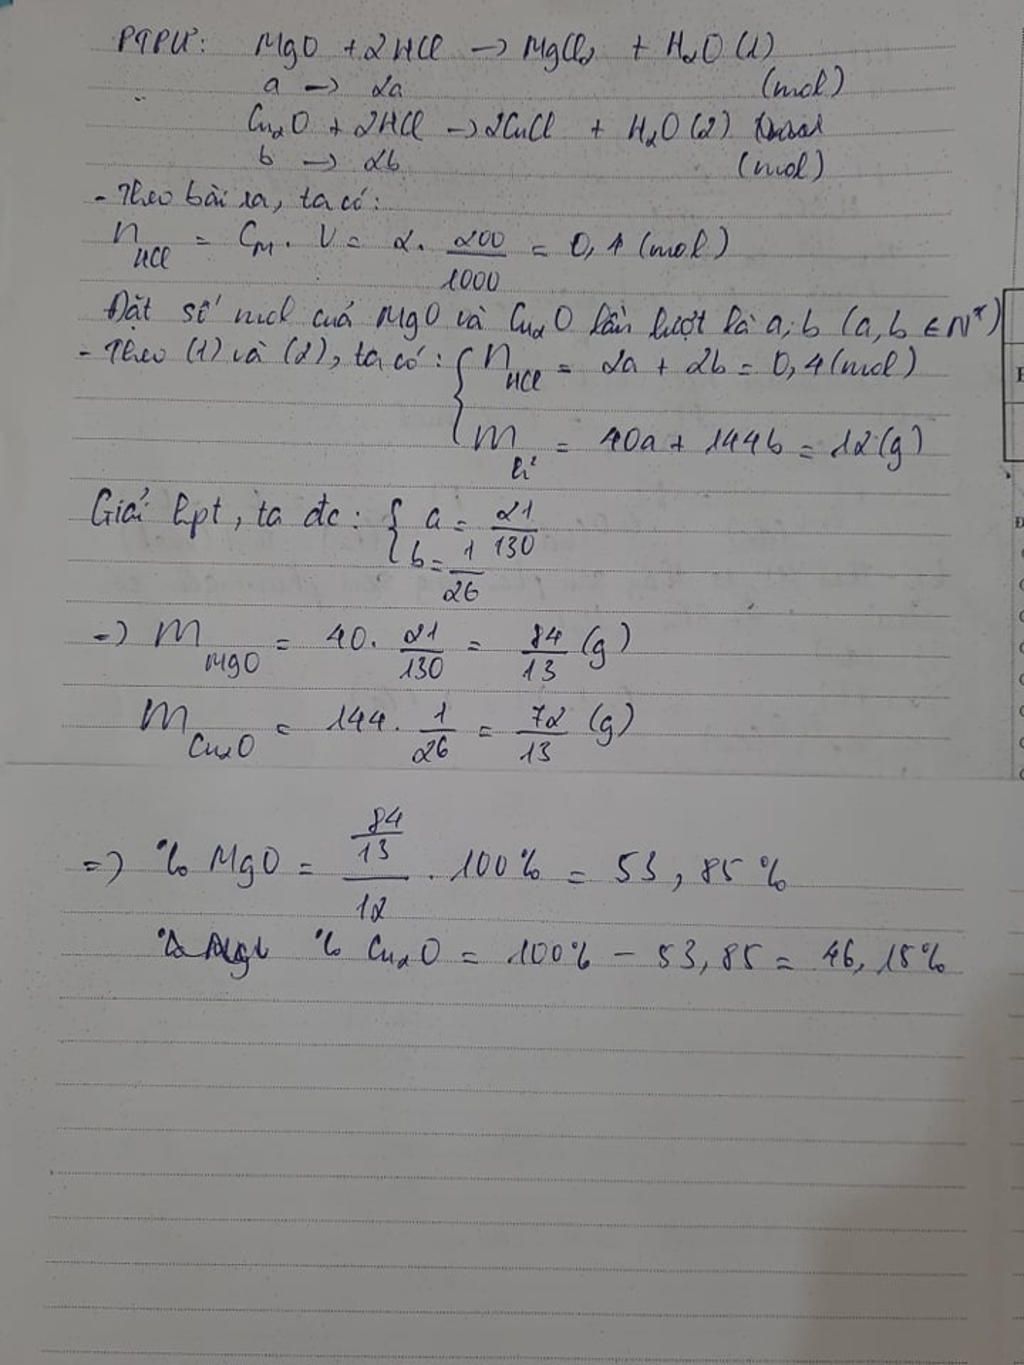 PTPƯ: MgO + 2HCl -> MgCl₂ + H₂O (1)
a -> 2a (mol)
Cu₂O + 2HCl -> 2CuCl + H₂O (2)
b -> 2b (mol)
- Theo bài ra, ta có:
n_HCl = C_M . V = 2. 200/1000 = 0,4 (mol)
Đặt số mol của MgO và Cu₂O lần lượt là a; b (a, b ∈ N*)
- Theo (1) và (2), ta có: { n_HCl = 2a + 2b = 0,4 (mol)
m_h² = 40a + 144b = 12 (g)
Giải hpt, ta đc: { a = 21/130
b = 1/26
=) m_MgO = 40. 21/130 = 84/13 (g)
m_Cu₂O = 144. 1/26 = 72/13 (g)
=) % MgO = 84/13/12 . 100% = 53,85%
% Cu₂O = 100% - 53,85 = 46,15%